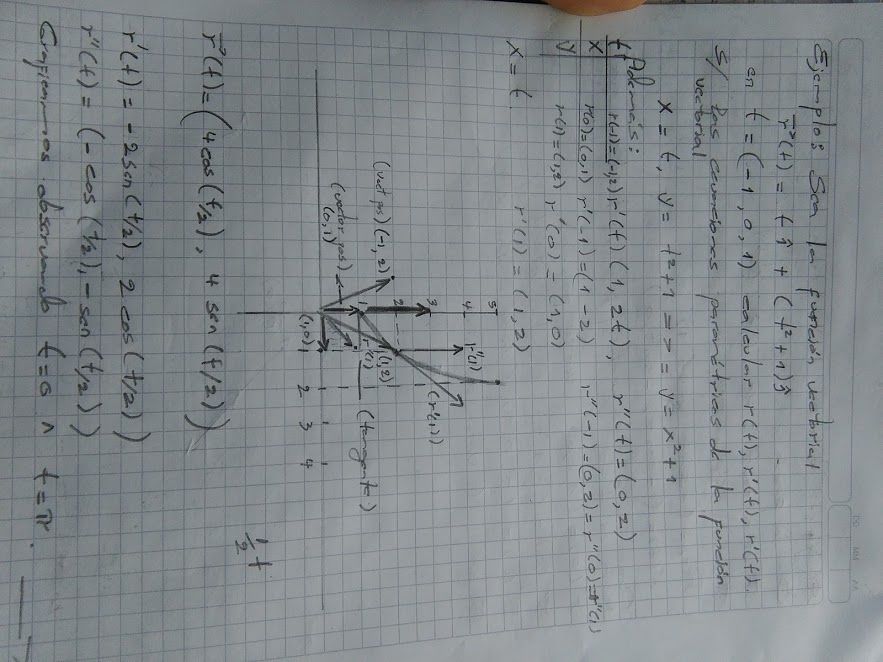 Ejemplo: Sea la función vectorial
r(t) = t î + (t²+1) ĵ
en t = (-1, 0, 1) calcular r(t), r'(t), r'(t).
s/ las ecuaciones paramétricas de la función
vectorial
x = t, y = t²+1 => = y = x²+1
Además:
r(-1)=(-1,2) r'(t) (1, 2t), r''(t) = (0, 2)
r(0)=(0,1) r'(-1)=(1-2) r''(-1)=(0,2)= r''(0)=r''(1)
r(1)=(1,2) r'(0) = (1,0)
x = t r'(1) = (1,2)
t
x
y
5
4
3
2
1
r''(1)
(r'(1))
(vect pos) (-1, 2)
(1,2)
r(1)
(tangente)
(vector pos)
(0,1)
(1,0)
1
2
3
4
1/2 t
r(t) = (4 cos(t/2), 4 sen(t/2))
r'(t) = -2 sen(t/2), 2 cos(t/2))
r''(t) = (- cos(t/2), - sen(t/2))
Graficamos observando t=0 ∧ t=π.